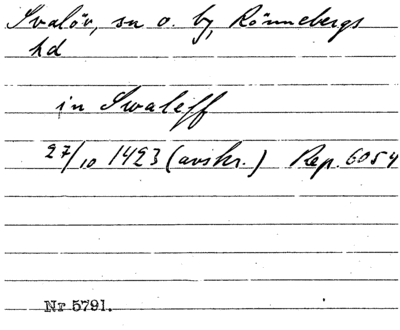 Svalöv, sn o. by, Rönnebergs
hd
in Swaleff
27/10 1423 (avskr.) Rep. 6054
Nr 5791.